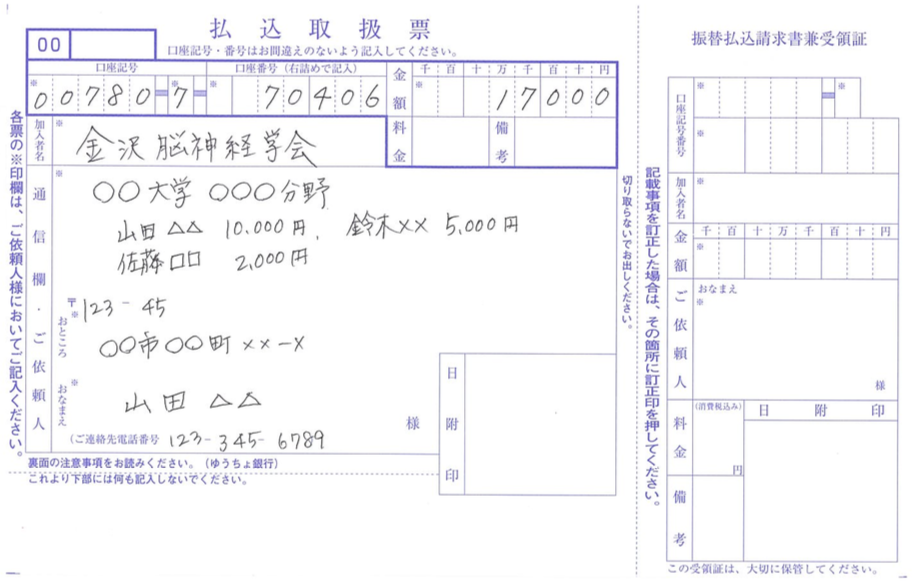 払込取扱票
00
口座記号・番号はお間違えのないよう記入してください。
口座記号 口座番号（右詰めで記入）
※ 00780=7= ※ 70406
金額 千百十万千百十円
※ 17000
加入者名 ※ 金沢脳神経学会
料金 備考
通信欄・ご依頼人
※ ○○大学 ○○○分野
山田△△ 10,000円, 鈴木×× 5,000円
佐藤□□ 2,000円
〒 123-45
おところ ※ ○○市○○町××-×
おなまえ ※ 山田 △△ 様
(ご連絡先電話番号 123-345-6789
日附印
裏面の注意事項をお読みください。（ゆうちょ銀行）
これより下部には何も記入しないでください。
各票の※印欄は、ご依頼人様においてご記入ください。
切り取らないでお出しください。
記載事項を訂正した場合は、その箇所に訂正印を押してください。
振替払込請求書兼受領証
口座記号番号 ※ = ※
※
加入者名 ※
金額 千百十万千百十円
※
ご依頼人 おなまえ
※
様
料金 (消費税込み) 円
日附印
備考
この受領証は、大切に保管してください。